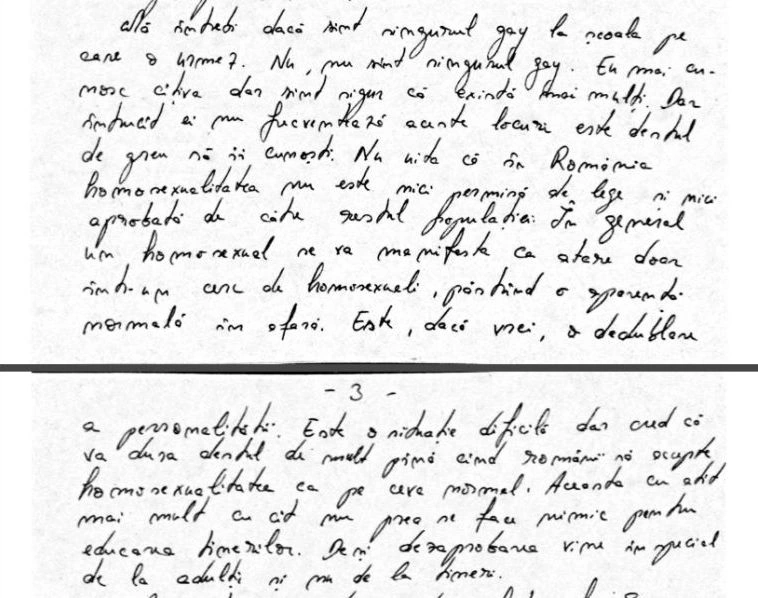 altă întrebi dacă sînt singurul gay la școala pe
care o urmez. Nu, nu sînt singurul gay. Eu mai cu-
nosc cîțiva dar sînt sigur că există mai mulți. Dar
întrucît ei nu frecventează aceste locuri este destul
de greu să îi cunoști. Nu uita că în România
homosexualitatea nu este nici permisă de lege și nici
aprobată de către restul populației. În general
un homosexual se va manifesta ca atare doar
într-un cerc de homosexuali, păstrînd o aparență
normală în afară. Este, dacă vrei, o dedublare
- 3 -
a personalității. Este o situație dificilă dar cred că
va dura destul de mult pînă cînd românii să accepte
homosexualitatea ca pe ceva normal. Aceasta cu atît
mai mult cu cît nu prea se face nimic pentru
educarea tinerilor. Deși dezaprobarea vine în special
de la adulți și nu de la tineri.